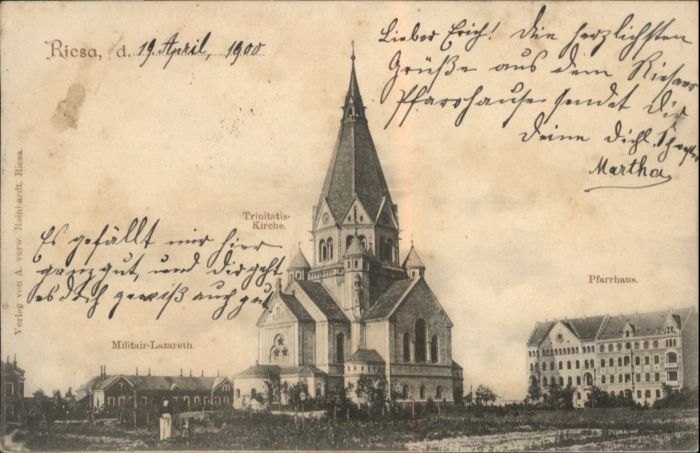 Riesa, d. 19. April, 1900
Lieber Erich! Die herzlichsten
Grüße aus dem Riesaer
Pfarrhause sendet dir
deine dich
Martha
Trinitatis-
Kirche.
Es gefällt mir hier
ganz gut, und dir geht
es doch gewiß auch gut
Pfarrhaus.
Militair-Lazareth.
Verlag von A. verw. Reinhardt, Riesa